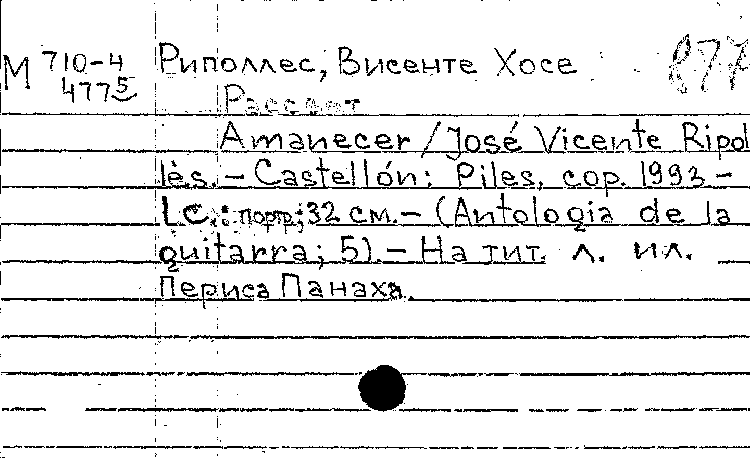 М 710-4 Риполлес, Висенте Хосе 877
4775 Рассвет
Amanecer / José Vicente Ripol
lès. – Castellón: Piles, cop. 1993 –
1 с.: портр; 32 см. – (Antologia de la
guitarra; 5). – На тит. л. ил.
Периса Панаха.